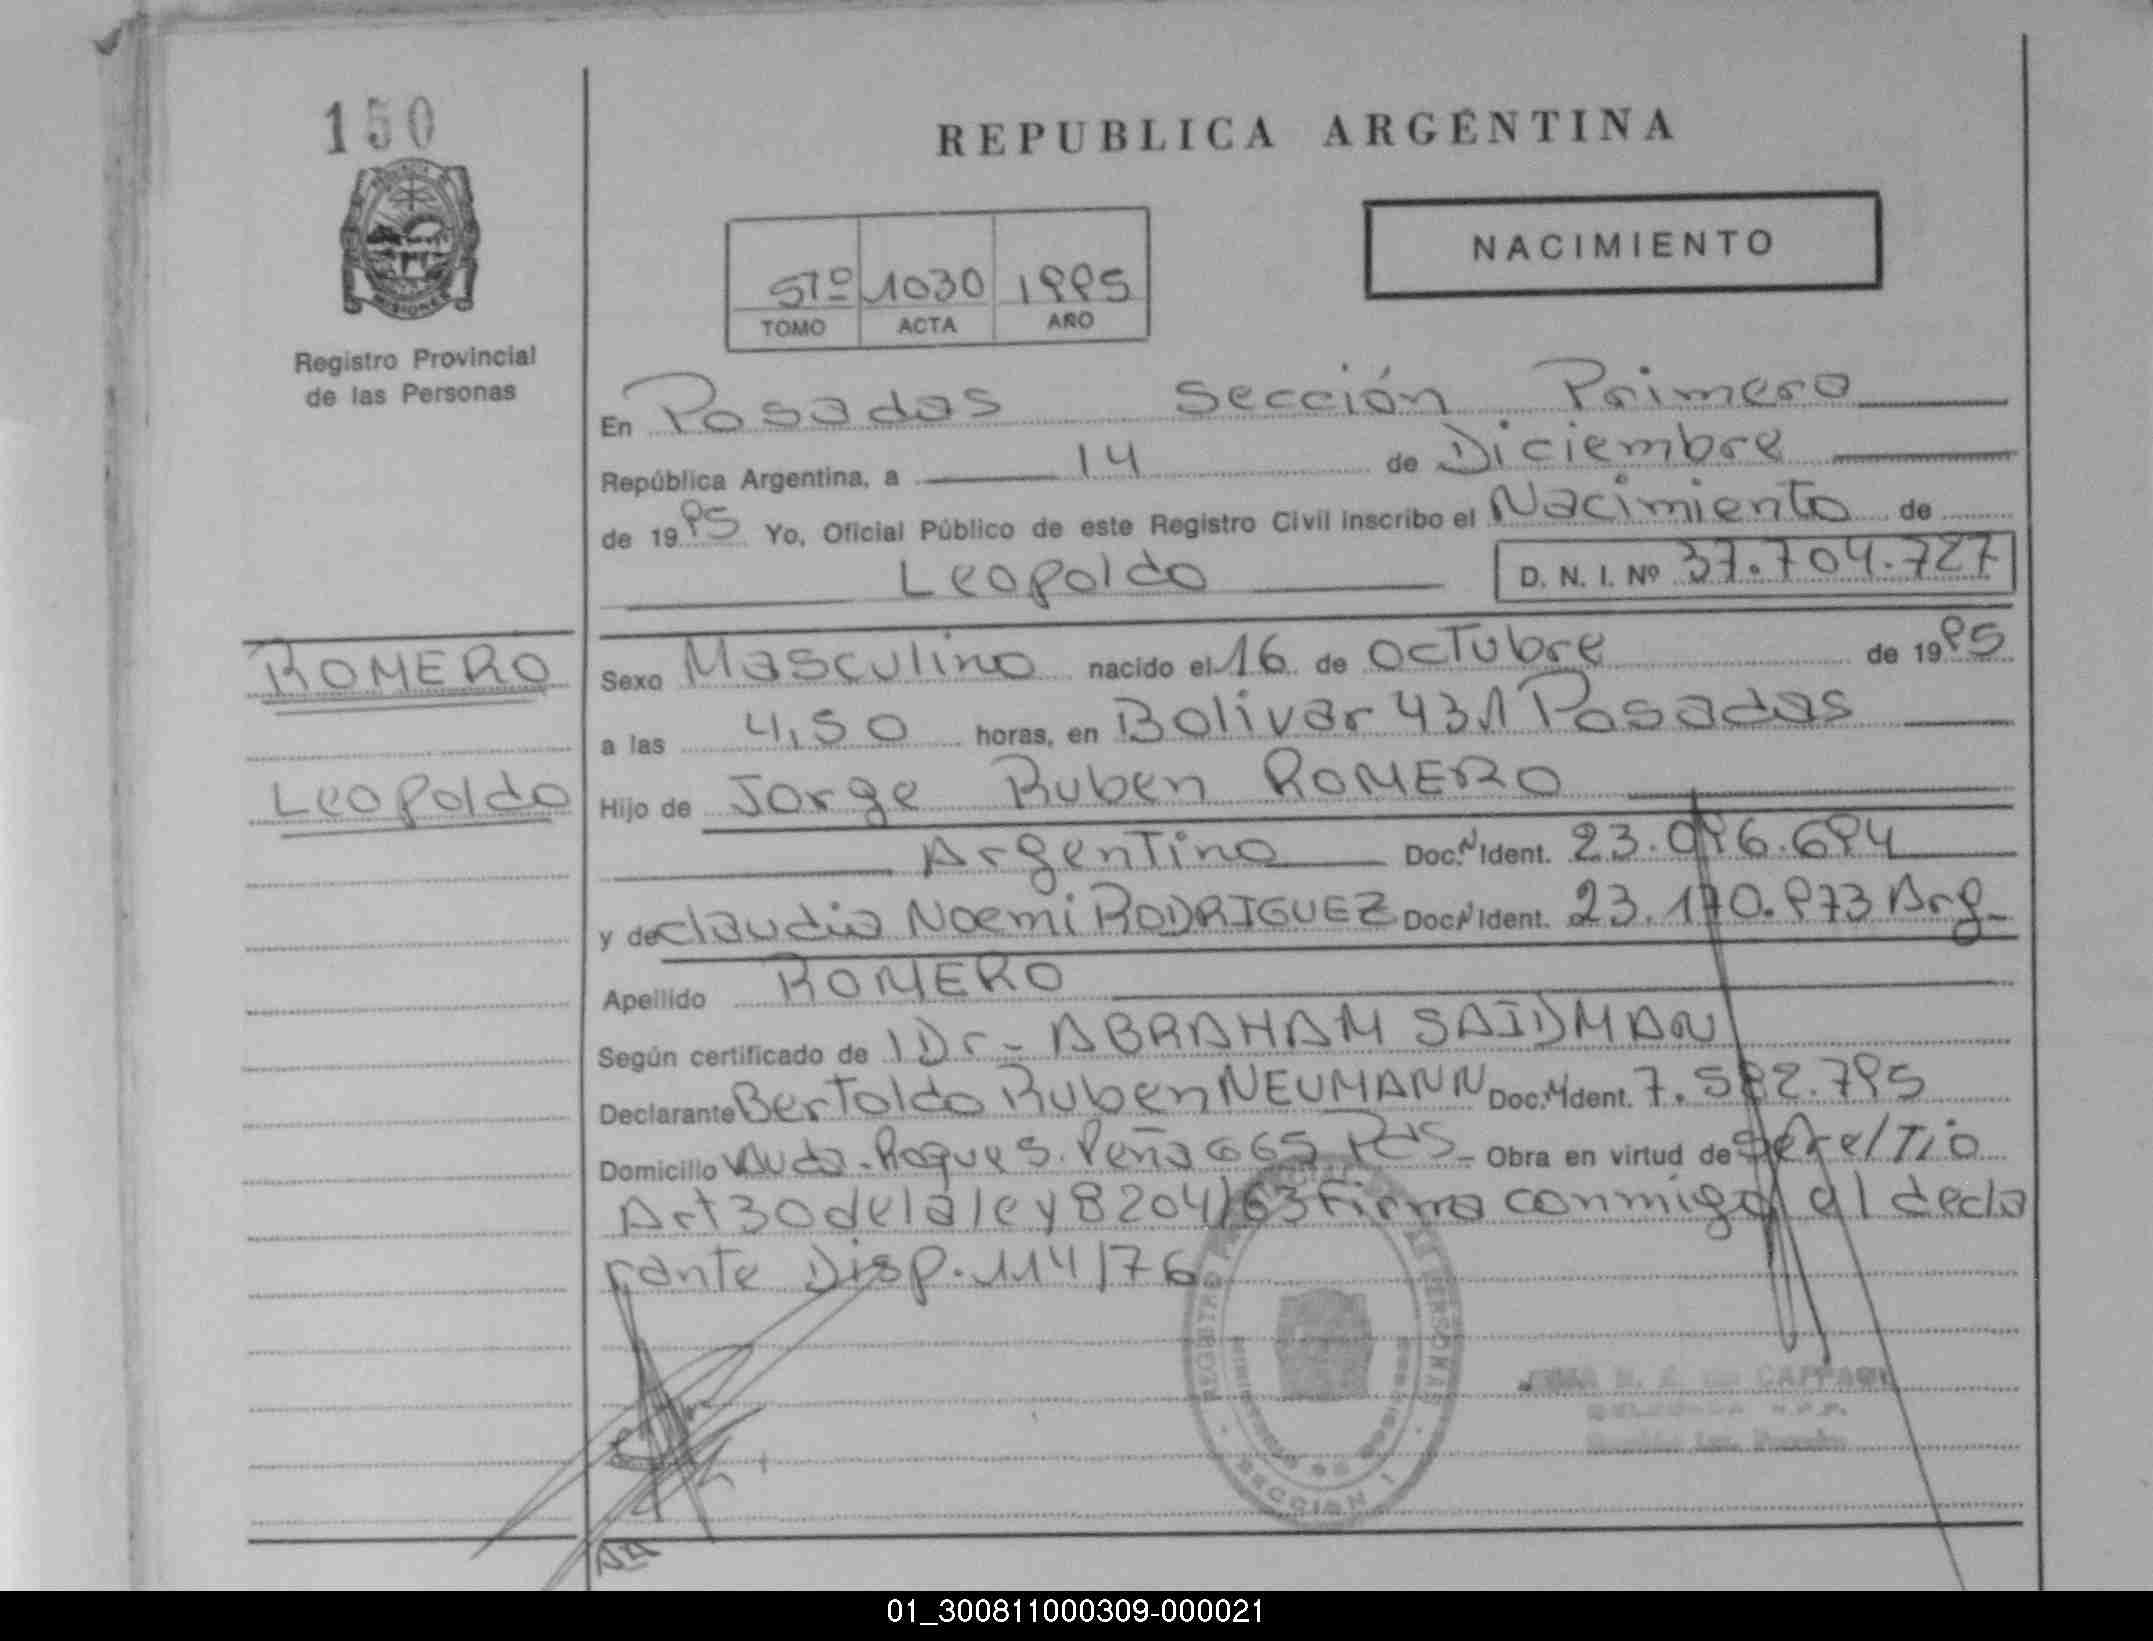 150
REPUBLICA ARGENTINA
NACIMIENTO
5Tº 1030 1995
TOMO ACTA AÑO
Registro Provincial
de las Personas
En Posadas Sección Primera
República Argentina, a 14 de Diciembre
de 1995 Yo, Oficial Público de este Registro Civil inscribo el Nacimiento de
Leopoldo D. N. I. Nº 37.704.727
ROMERO
Sexo Masculino nacido el 16 de Octubre de 1995
a las 4,50 horas, en Bolivar 431 Posadas
Leopoldo
Hijo de Jorge Ruben ROMERO
Argentino Doc. N Ident. 23.096.694
y de Claudia Noemi RODRIGUEZ Doc. N Ident. 23.170.973 Arg.
Apellido ROMERO
Según certificado de Dr. ABRAHAM SAIDMAN
Declarante Bertoldo Ruben NEUMANN Doc. N Ident. 7.582.795
Domicilio Avda. Roque S. Peña 665 Pdas. Obra en virtud de ser el Tio
Art 30 de la ley 8204/63 firma conmigo el decla
rante Disp. 114/76
REGISTRO PERSONAS
SECCION 1
01_300811000309-000021